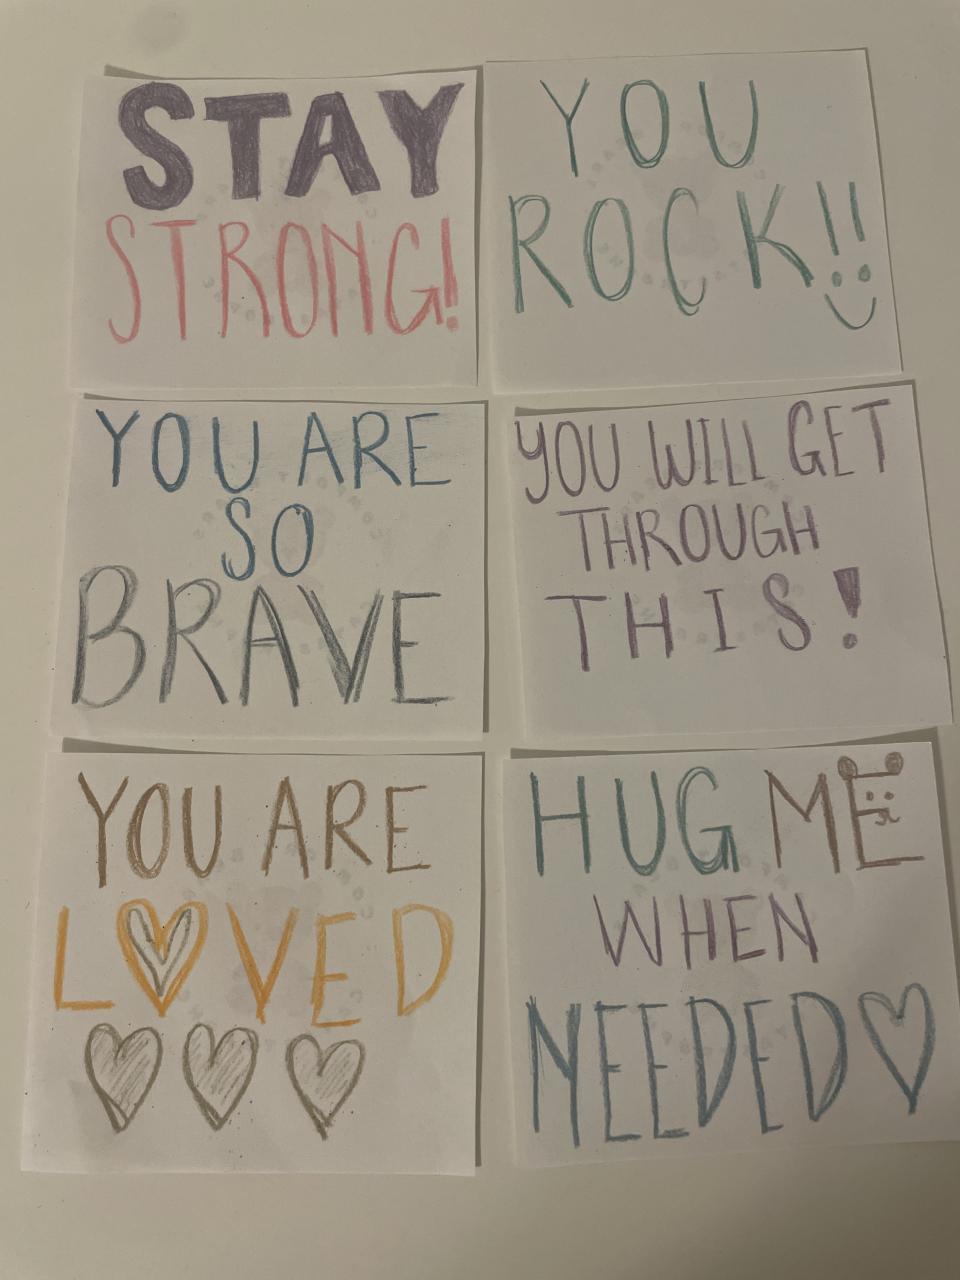 STAY
STRONG!
YOU
ROCK!!
YOU ARE
SO
BRAVE
YOU WILL GET
THROUGH
THIS!
YOU ARE
LOVED
HUG ME
WHEN
NEEDED